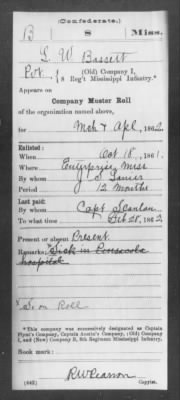 (Confederate.)
B 8 Miss.
L. W. Bassett
Pvt., { (Old) Company I,
8 Reg't Mississippi Infantry.*
Appears on
Company Muster Roll
of the organization named above,
for Mch & Apl, 1862.
Enlisted:
When Oct 18, 1861.
Where Enterprise Miss
By whom J. C. Lanier
Period 12 Months
Last paid:
By whom Capt Scanlan
To what time Feb 28, 1862
Present or absent Present
Remarks: Sick in Pensacola
hospital
So on Roll
*This company was successively designated as Captain
Company I, and (New) Company B, 8th Regiment Mississippi Infantry.
Book mark:
R W Pearson
(642) Copyist.